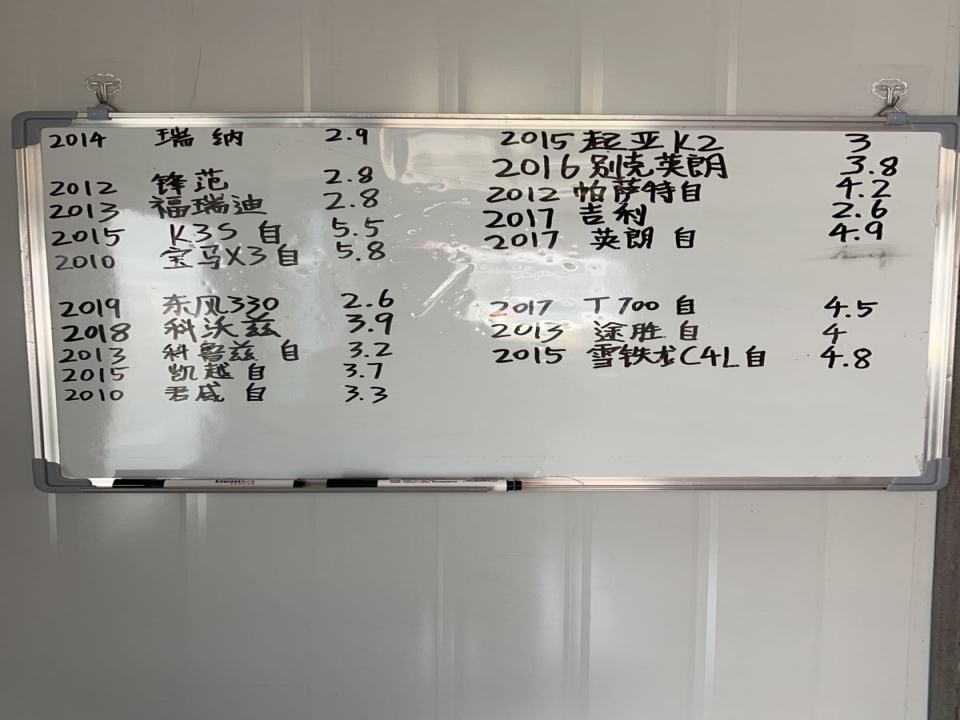 2014 瑞纳 2.9
2012 锋范 2.8
2013 福瑞迪 2.8
2015 K3S 自 5.5
2010 宝马X3自 5.8
2019 东风330 2.6
2018 科沃兹 3.9
2013 科鲁兹 自 3.2
2015 凯越自 3.7
2010 君威 自 3.3
2015起亚K2 3
2016别克英朗 3.8
2012帕萨特自 4.2
2017 吉利 2.6
2017 英朗 自 4.9
2017 T700自 4.5
2013 途胜自 4
2015 雪铁龙C4L自 4.8